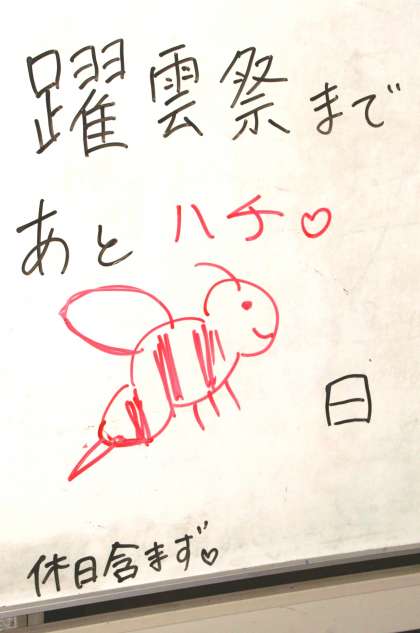 躍雲祭まで
あとハチ♡
日
休日含まず♡